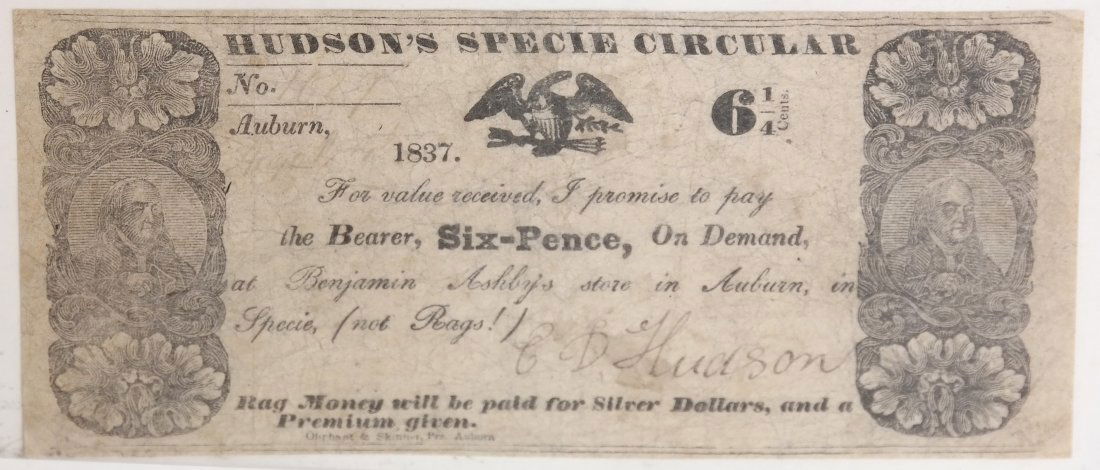 HUDSON'S SPECIE CIRCULAR
No.
Auburn,
1837.
6 1/4 Cents.
For value received, I promise to pay
the Bearer, Six-Pence, On Demand,
at Benjamin Ashby's store in Auburn, in
Specie, (not Rags!)
C D Hudson
Rag Money will be paid for Silver Dollars, and a
Premium given.
Oliphant & Skinner, Prs. Auburn